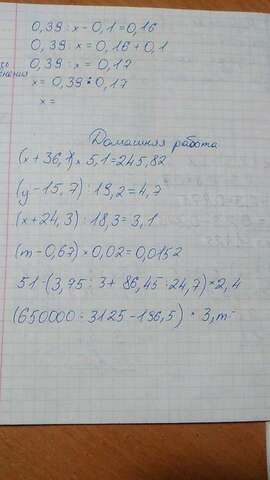 0,39 : x - 0,1 = 0,16
0,39 : x = 0,16 + 0,1
0,39 : x = 0,17
x = 0,39 : 0,17
x =
Домашняя работа
(x + 36,1) x 5,1 = 245,82
(y - 15,7) : 19,2 = 4,7
(x + 24,3) : 18,3 = 3,1
(m - 0,67) × 0,02 = 0,0152
51 - (3,75 : 3 + 86,45 : 24,7) * 2,4
(650000 : 3125 - 196,5) * 3,